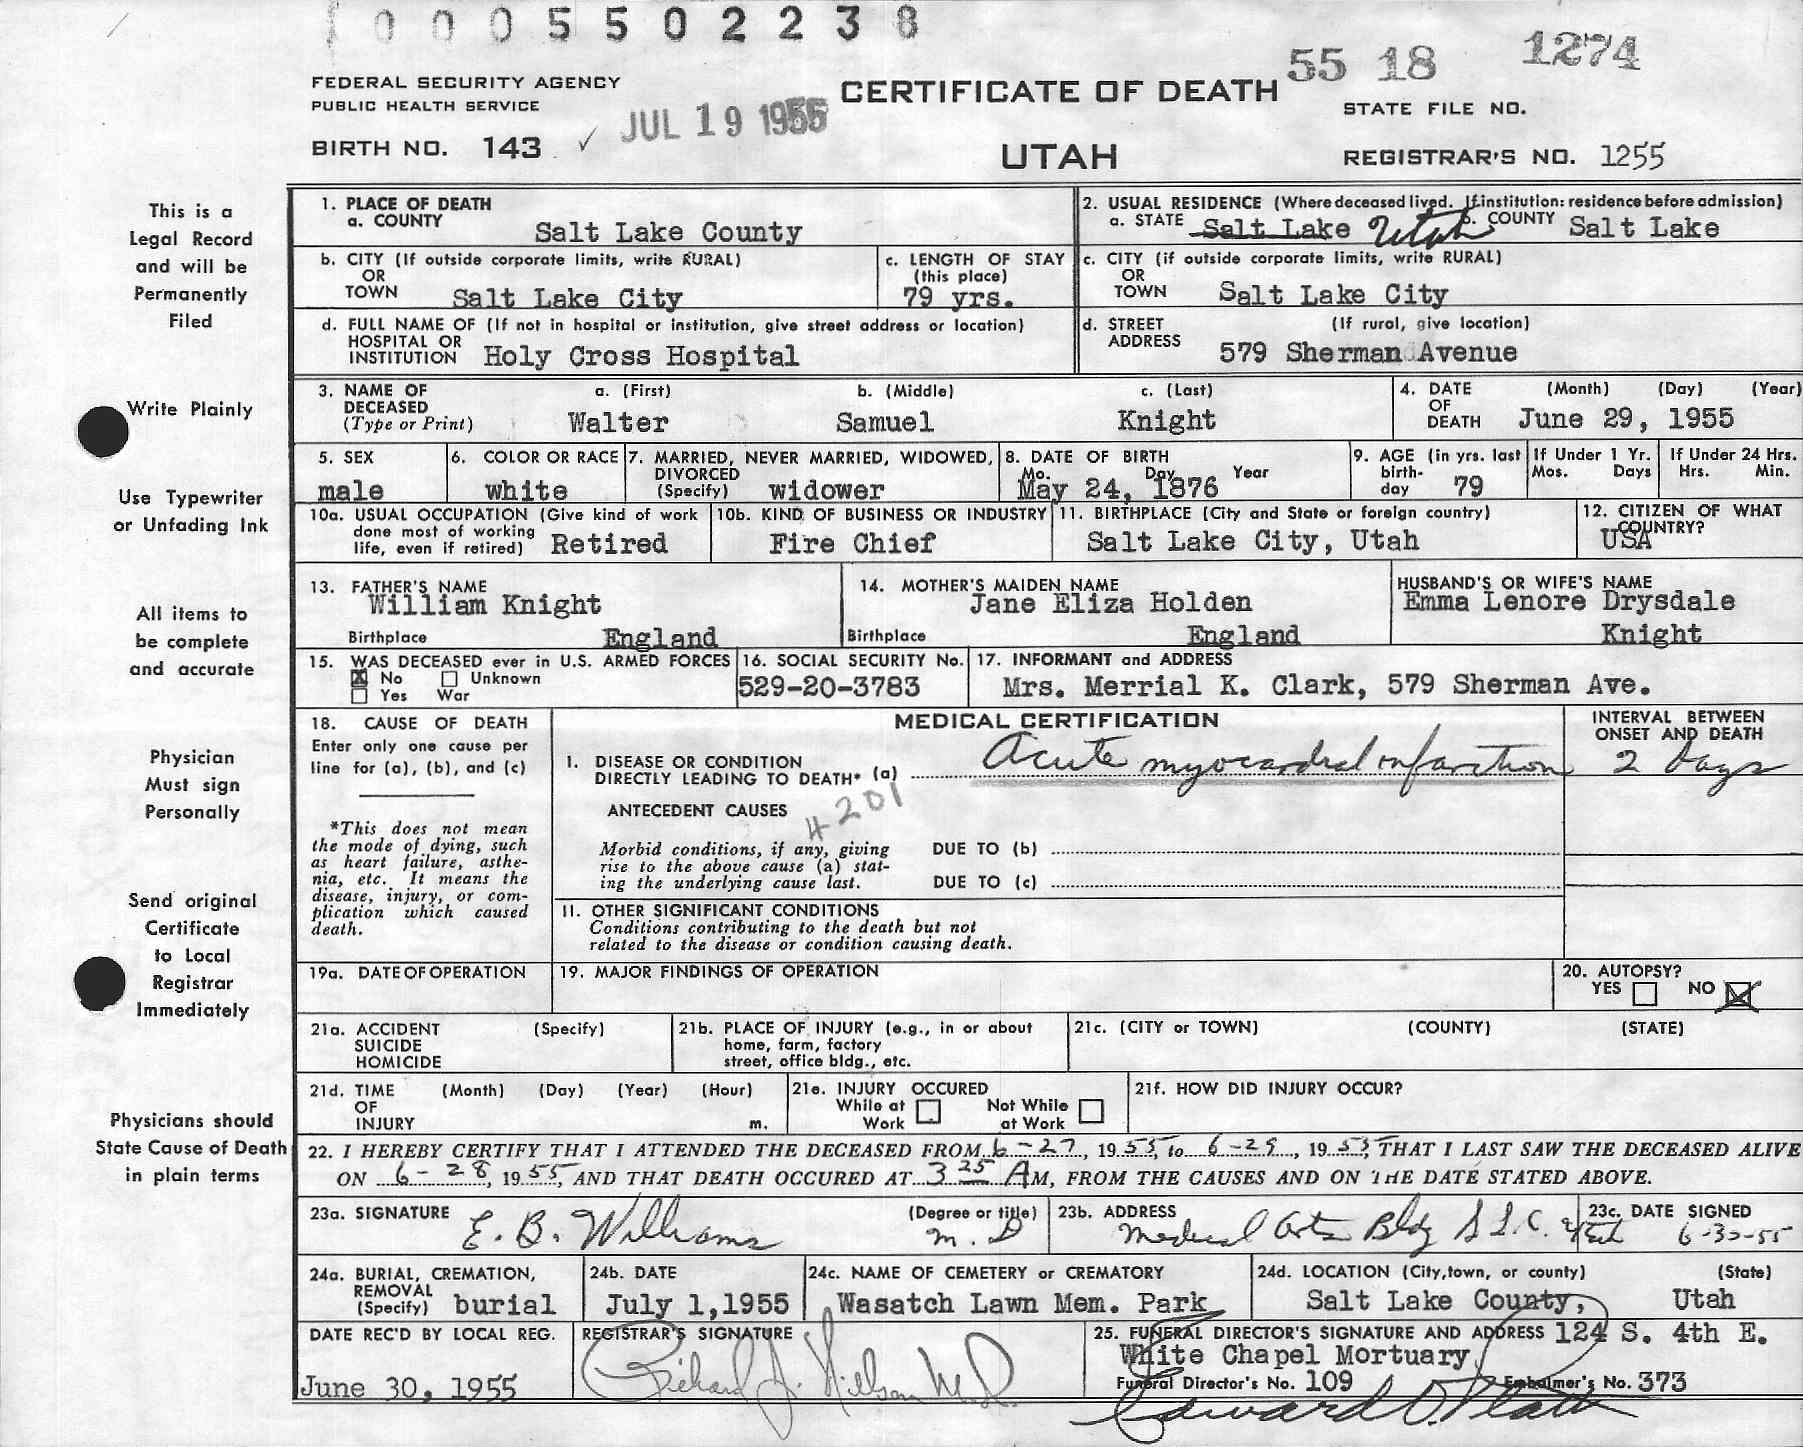 0 0 0 5 5 0 2 2 3 8
55 18 1274
FEDERAL SECURITY AGENCY
PUBLIC HEALTH SERVICE
CERTIFICATE OF DEATH
STATE FILE NO.
JUL 19 1955
BIRTH NO. 143 ✓
UTAH
REGISTRAR'S NO. 1255
This is a
Legal Record
and will be
Permanently
Filed
Write Plainly
Use Typewriter
or Unfading Ink
All items to
be complete
and accurate
Physician
Must sign
Personally
Send original
Certificate
to Local
Registrar
Immediately
Physicians should
State Cause of Death
in plain terms
1. PLACE OF DEATH
a. COUNTY Salt Lake County
2. USUAL RESIDENCE (Where deceased lived. If institution: residence before admission)
a. STATE Salt Lake Utah b. COUNTY Salt Lake
b. CITY (If outside corporate limits, write RURAL)
OR
TOWN Salt Lake City
c. LENGTH OF STAY
(this place)
79 yrs.
c. CITY (if outside corporate limits, write RURAL)
OR
TOWN Salt Lake City
d. FULL NAME OF (If not in hospital or institution, give street address or location)
HOSPITAL OR
INSTITUTION Holy Cross Hospital
d. STREET (If rural, give location)
ADDRESS 579 Sherman Avenue
3. NAME OF a. (First) b. (Middle) c. (Last)
DECEASED
(Type or Print) Walter Samuel Knight
4. DATE (Month) (Day) (Year)
OF
DEATH June 29, 1955
5. SEX
male
6. COLOR OR RACE
white
7. MARRIED, NEVER MARRIED, WIDOWED,
DIVORCED
(Specify) widower
8. DATE OF BIRTH
Mo. Day Year
May 24, 1876
9. AGE (in yrs. last
birth-
day 79
If Under 1 Yr.
Mos. Days
If Under 24 Hrs.
Hrs. Min.
10a. USUAL OCCUPATION (Give kind of work
done most of working
life, even if retired) Retired
10b. KIND OF BUSINESS OR INDUSTRY
Fire Chief
11. BIRTHPLACE (City and State or foreign country)
Salt Lake City, Utah
12. CITIZEN OF WHAT
COUNTRY?
USA
13. FATHER'S NAME
William Knight
Birthplace England
14. MOTHER'S MAIDEN NAME
Jane Eliza Holden
Birthplace England
HUSBAND'S OR WIFE'S NAME
Emma Lenore Drysdale
Knight
15. WAS DECEASED ever in U.S. ARMED FORCES
X No Unknown
Yes War
16. SOCIAL SECURITY No.
529-20-3783
17. INFORMANT and ADDRESS
Mrs. Merrial K. Clark, 579 Sherman Ave.
18. CAUSE OF DEATH
Enter only one cause per
line for (a), (b), and (c)
*This does not mean
the mode of dying, such
as heart failure, asthe-
nia, etc. It means the
disease, injury, or com-
plication which caused
death.
MEDICAL CERTIFICATION
INTERVAL BETWEEN
ONSET AND DEATH
I. DISEASE OR CONDITION
DIRECTLY LEADING TO DEATH* (a) Acute myocardial infarction 2 Days
4201
ANTECEDENT CAUSES
Morbid conditions, if any, giving
rise to the above cause (a) stat-
ing the underlying cause last.
DUE TO (b)
DUE TO (c)
11. OTHER SIGNIFICANT CONDITIONS
Conditions contributing to the death but not
related to the disease or condition causing death.
19a. DATE OF OPERATION
19. MAJOR FINDINGS OF OPERATION
20. AUTOPSY?
YES NO X
21a. ACCIDENT (Specify)
SUICIDE
HOMICIDE
21b. PLACE OF INJURY (e.g., in or about
home, farm, factory
street, office bldg., etc.
21c. (CITY or TOWN) (COUNTY) (STATE)
21d. TIME (Month) (Day) (Year) (Hour)
OF
INJURY m.
21e. INJURY OCCURED
While at Not While
Work at Work
21f. HOW DID INJURY OCCUR?
22. I HEREBY CERTIFY THAT I ATTENDED THE DECEASED FROM 6-27, 1955, to 6-29, 1955, THAT I LAST SAW THE DECEASED ALIVE
ON 6-28, 1955, AND THAT DEATH OCCURED AT 3 25 AM, FROM THE CAUSES AND ON THE DATE STATED ABOVE.
23a. SIGNATURE (Degree or title)
E. B. Williams M. D
23b. ADDRESS
Medical Arts Bldg S L C. Utah
23c. DATE SIGNED
6-30-55
24a. BURIAL, CREMATION,
REMOVAL
(Specify) burial
24b. DATE
July 1,1955
24c. NAME OF CEMETERY or CREMATORY
Wasatch Lawn Mem. Park
24d. LOCATION (City,town, or county) (State)
Salt Lake County, Utah
DATE REC'D BY LOCAL REG.
June 30, 1955
REGISTRAR'S SIGNATURE
Richard J. Nelson M.D.
25. FUNERAL DIRECTOR'S SIGNATURE AND ADDRESS 124 S. 4th E.
White Chapel Mortuary
Funeral Director's No. 109 Embalmer's No. 373
Edward O. Platt